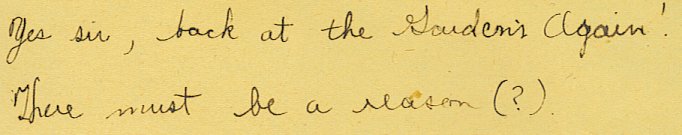 Yes sir, back at the Garden's Again!
There must be a reason (?).